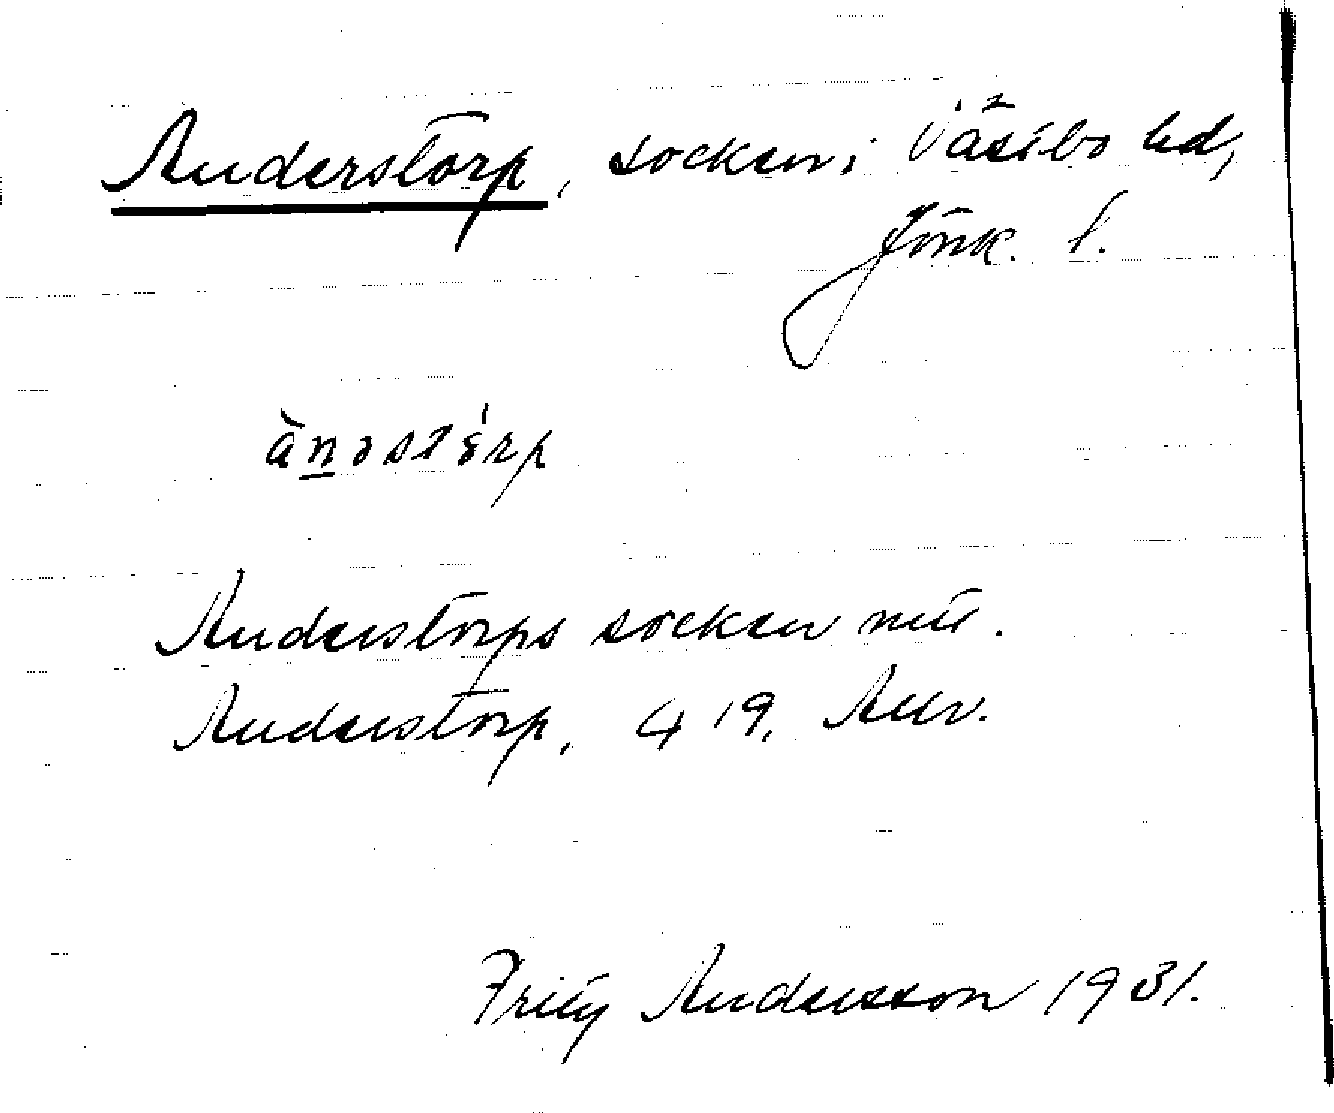 Anderstorp, socken i Västbo hd,
Jönk. l.
Anderstorps socken
Anderstorp, 4 19,
Fritz Andersson 1931.